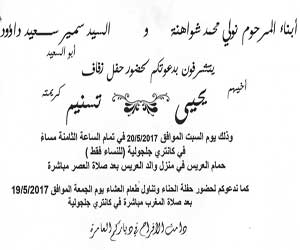 أبناء المرحوم نولي محمد شواهنة و السيد سمير سعيد داؤود
أبو السعيد
يتشرفون بدعوتكم لحضور حفل زفاف
أخيهم كريمته
يحيى تسنيم
وذلك يوم السبت الموافق 20/5/2017 في تمام الساعة الثامنة مساءً
في كانتري جلجولية (للنساء فقط)
حمام العريس في منزل والد العريس بعد صلاة العصر مباشرة
كما ندعوكم لحضور حفلة الحناء وتناول طعام العشاء يوم الجمعة الموافق 19/5/2017
بعد صلاة المغرب مباشرة في كانتري جلجولية
دامت الأفراح في دياركم العامرة